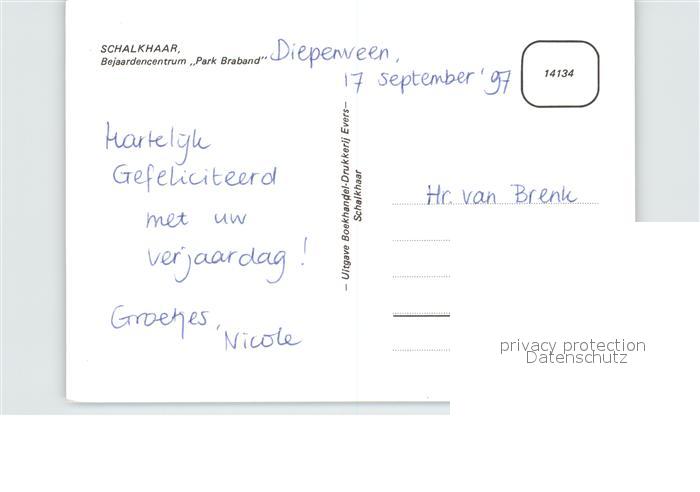 SCHALKHAAR,
Bejaardencentrum „Park Braband"
Diepenveen,
17 september '97
14134
Hartelijk
Gefeliciteerd
met uw
verjaardag!
Groetjes,
Nicole
— Uitgave Boekhandel-Drukkerij Evers—
Schalkhaar
Hr. van Brenk
privacy protection
Datenschutz